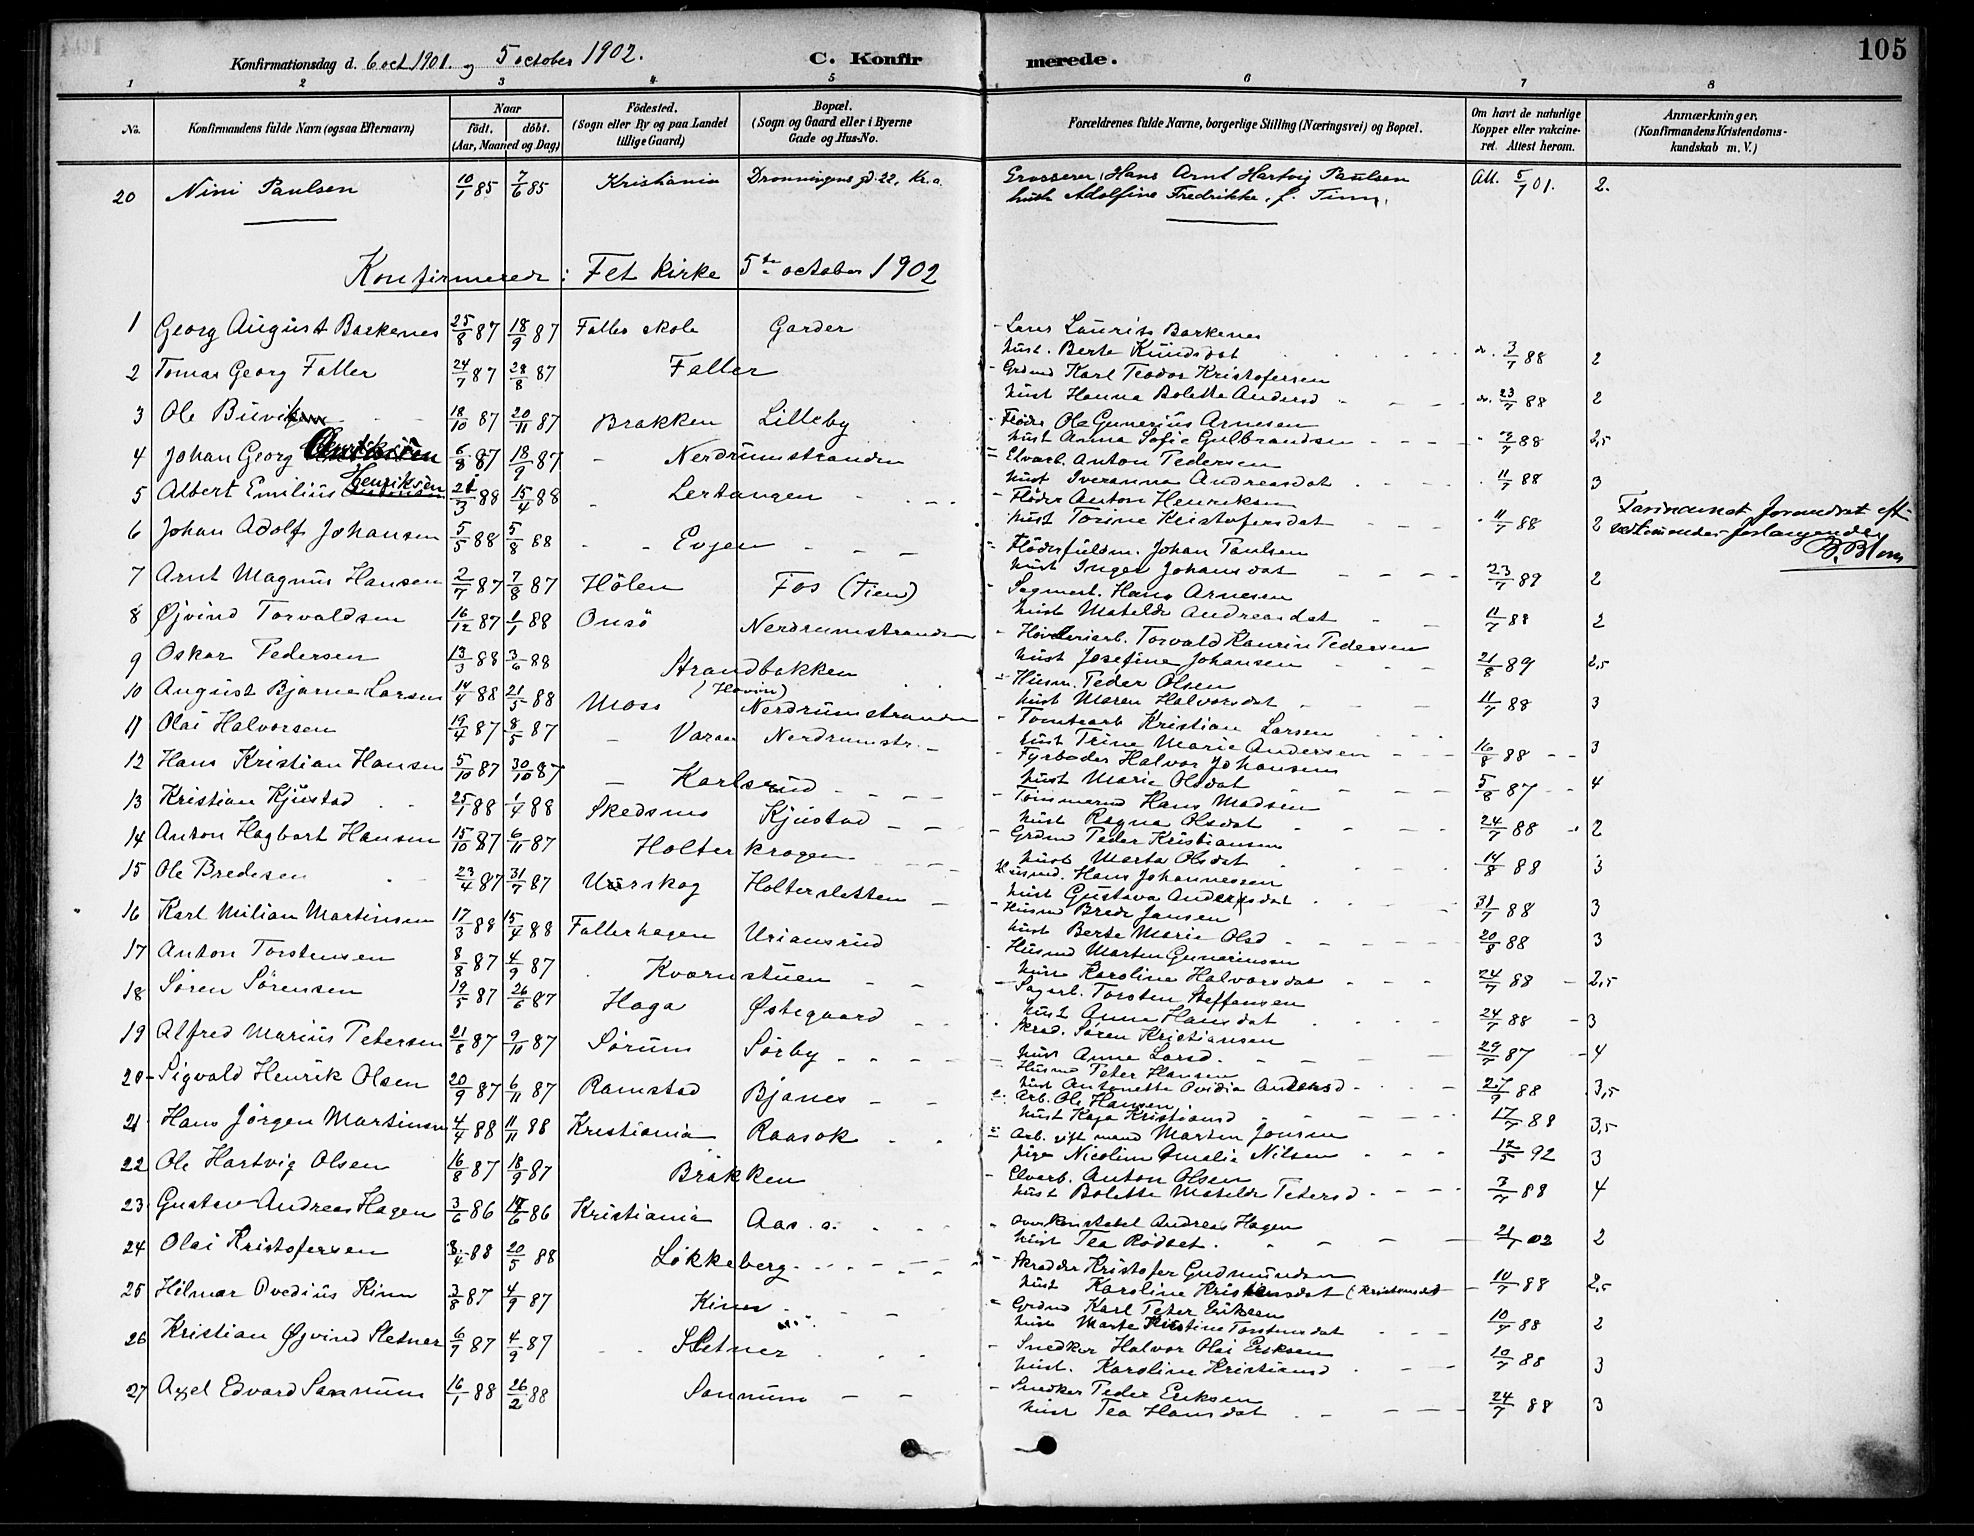 105
Konfirmationsdag d. 6 oct 1901. og 5 october 1902.
C. Konfir merede.
1 2 3 4 5 6 7 8
No. Konfirmandens fulde Navn (ogsaa Efternavn) Naar født. døbt. (Aar, Maaned og Dag) Födested. (Sogn eller By og paa Landet tillige Gaard) Bopæl. (Sogn og Gaard eller i Byerne Gade og Hus-No. Forældrenes fulde Navne, borgerlige Stilling (Næringsvei) og Bopæl. Om havt de naturlige Kopper eller vakcineret. Attest herom. Anmærkninger. (Konfirmandens Kristendomskundskab m. V.)
20 Nini Paulsen 10/1 85 7/6 85 Kristiania Dronningens gd. 22, Kr.a. Grosserer Hans Arnt Hartvig Paulsen Att. 5/7 01. 2.
hust Adolfine Fredrikke, f.
Konfirmerede i Fet kirke 5te october 1902
1 Georg August Barkenes 25/8 87 18/9 87 Faller skole Garder - Lars Laurits Barkenes
hust. Berte Knudsdat 3/7 88 2
2 Tomas Georg Faller 24/7 87 28/8 87 Faller - Grdmd Karl Teodor Kristofersen
hust Hanna Bolette Andersd 23/7 88 2
3 Ole Buvik 18/10 87 20/11 87 Brakken Lilleby - Fløder Ole Gunerius Arnesen
hust Anna Sofie Gulbrandsen 3/7 88 2,5
4 Johan Georg 6/8 87 18/9 87 - Nerdrumstranden = Elvarb. Anton Pedersen
hust Iveranna Andreasdat 11/7 88 3
5 Albert Emilius Henriksen 21/3 88 15/4 88 - Lertangen - Fløder Anton Henriksen
hust Torine Kristofersdat 11/7 88 2 Farinavnet forandret eft.
vedkommendes forlangende
B. Blom
6 Johan Adolf Johansen 5/5 88 5/8 88 - Evjen = Fløderfuldm. Johan Paulsen
hust Inger Johansdat 23/7 89 2
7 Arnt Magnus Hansen 2/7 87 7/8 87 Hölen Fos (Tien) - Sagmest. Hans Arnesen
hust Matilde Andreasdat 11/7 88 2
8 Øjvind Torvaldsen 16/12 87 1/1 88 Onsö Nerdrumstranden - Høvleriarb. Torvald Laurin Pedersen
hust Josefine Johansen 21/8 89 2,5
9 Oskar Pedersen 13/3 88 3/6 88 Strandbakken (Hovin) = Husm. Peder Olsen
hust Maren Halvorsdat 11/7 88 3
10 August Bjarne Larsen 14/4 88 21/5 88 Moss Nerdrumstranden - Tomtearb Kristian Larsen
hust Trine Marie Andersen 16/8 88 3
11 Olai Halvorsen 19/4 87 8/5 87 - Varaa Nerdrumstr. - Fyrbøder Halvor Johansen
hust Marie Olsdat 5/8 87 4
12 Hans Kristian Hansen 5/10 87 30/10 87 - Karlsrud - Tømmermd Hans Madsen
hust Ragna Olsdat 24/7 88 2
13 Kristian Kjustad 25/1 88 1/4 88 Skedsmo Kjustad - Grdmd Peder Kristiansen
hust Marta Olsdat 14/8 88 3
14 Anton Hagbart Hansen 15/10 87 6/11 87 Holter krogen Husmd. Hans Johannessen
hust Gustava Andersdat 31/7 88 3
15 Ole Bredesen 23/4 87 31/7 87 Urskog Holtersletten - Husmd Brede Jansen
hust Berte Marie Olsd 20/8 88 3
16 Karl Milian Martinsen 17/3 88 15/4 88 Fallerhagen Uriansrud - Husmd Martin Gunerinssen
hust Karoline Halvorsdat 24/7 88 2,5
17 Anton Torstensen 8/8 87 4/9 87 Kværnstuen - Sagarb. Torsten Steffensen
hust Anne Hansdat 24/7 88 3
18 Søren Sørensen 19/5 87 26/6 87 Haga Østegaard Skred. Søren Kristiansen
hust Anne Larsd. 29/7 87 4
19 Alfred Marius Petersen 21/8 87 9/10 87 Sørum Sørby - Husmd Peter Hansen
hust Antonette Ovidia Andersd 27/9 88 3,5
20 Sigvald Henrik Olsen 20/9 87 6/11 87 Ramstad Bjanes e. Arb. Ole Hansen
hust Kaja Kristiansd 17/7 88 3,5
21 Hans Jørgen Martinsen 4/4 88 11/11 88 Kristiania Raasok = Arb. gift mand Martin Jonsen
pige Nicoline Amalie Nilsen 12/5 92 3
22 Ole Hartvig Olsen 16/8 87 18/9 87 Bråkken - Elvarb. Anton Olsen
hust Bolette Matilde Petersd 3/7 88 4
23 Gustav Andreas Hagen 3/6 86 17/6 86 Kristiania Aas. ø. Overkonstabel Andreas Hagen
hust Tea Rødset. 21/7 02 2
24 Olai Kristofersen 8/4 88 20/5 88 Løkkeberg - Skrædder Kristofer Gudmundsen
hust Karoline Kristensdat (Kristensdat 10/7 88 2,5
25 Hilmar Ovedius Kinn 3/8 87 4/9 87 Kinn = Grdmd Karl Peter Eriksen
hust Marte Kristine Torstensdat 10/7 88 2
26 Kristian Øyvind Sletner 6/7 87 4/9 87 Sletner - Snedker Halvor Olai Eriksen
hust. Karoline Kristiansd 10/7 88 3
27 Axel Edvard Sannum 16/1 88 26/2 88 Sannum - Snedker Peder Eriksen
hust Tea Hansdat 24/7 88 3